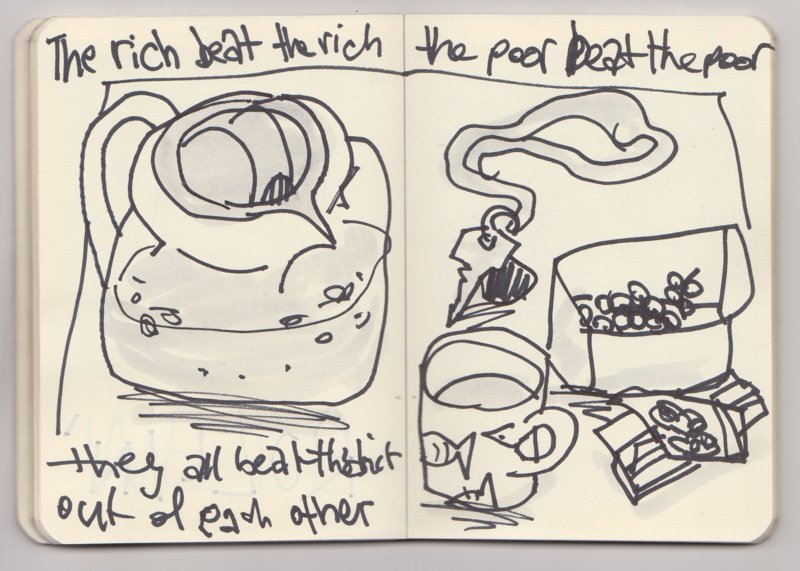 The rich beat the rich
the poor beat the poor
they all beat
out of each other